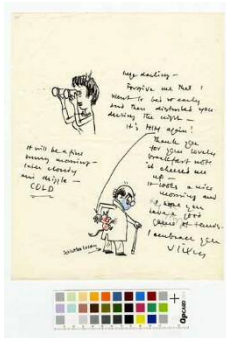 Inge darling –
Forgive me that I
went to bed so early
and then disturbed you
during the night –
It's 
again!
Thank you
for your lovely
breakfast note
it cheered me
up –
It looks a nice
morning and
I hope you
have a good
game of tennis.
I embrace you
It will be a fine
sunny morning –
later cloudy
and drizzle –
COLD